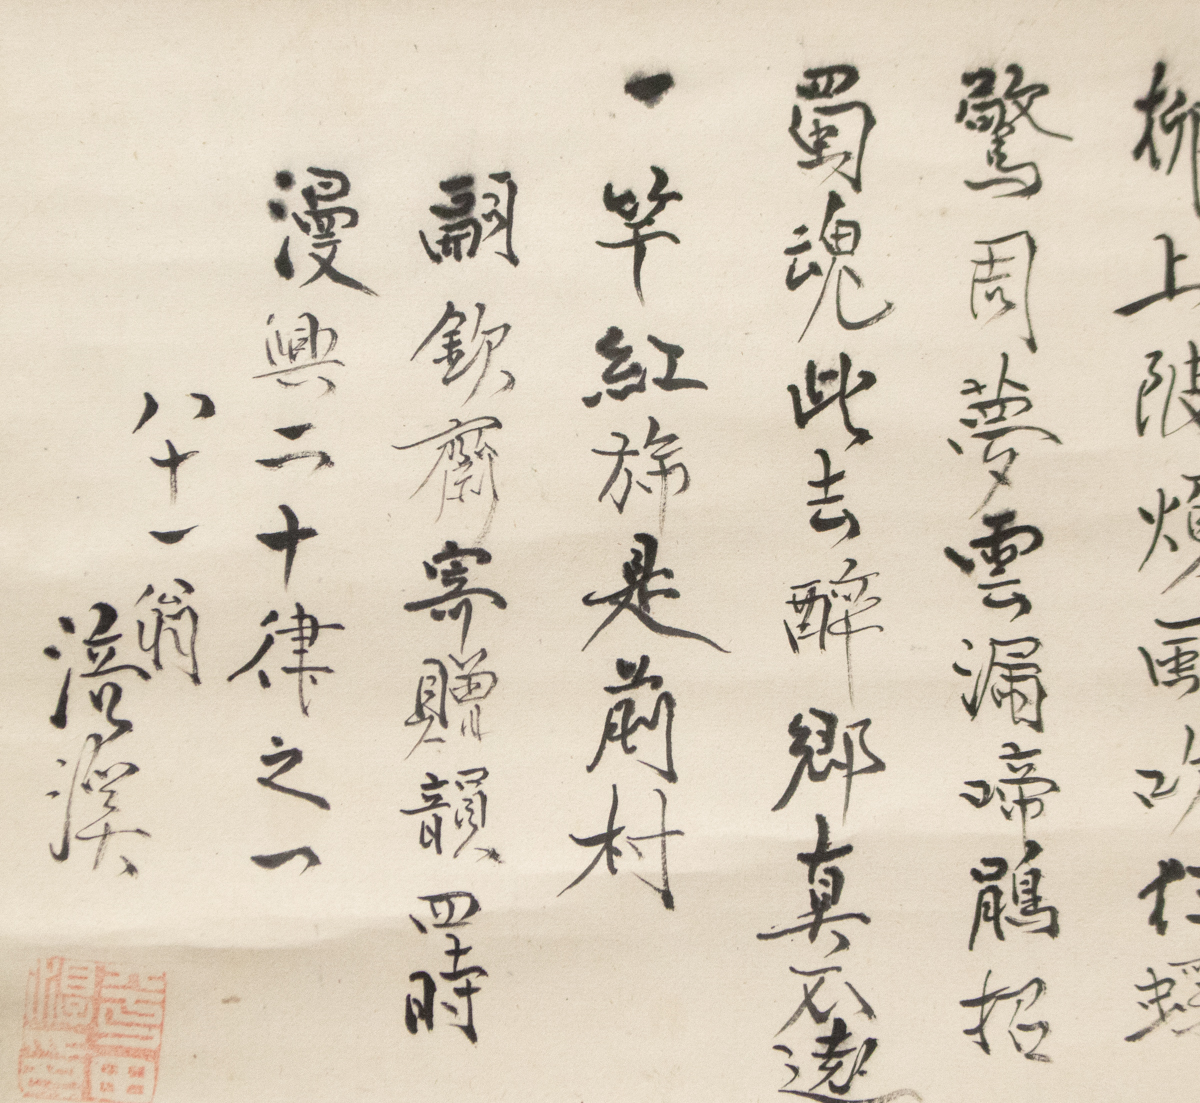 柳上陂煙画吹狂蝶
驚周夢雲漏啼鵑招
蜀魂此去酔郷真不遠
一竿紅旆是前村
嗣欽齋寄贈韻四時
漫興二十律之一
八十一翁